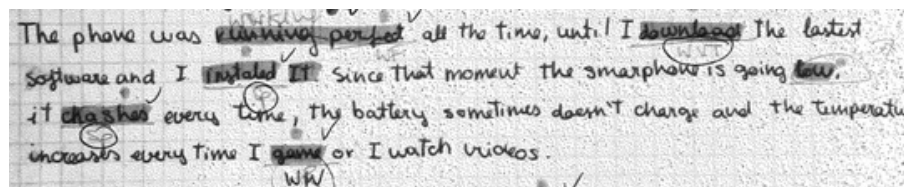 working
The phone was running perfect all the time, until I download the lastest
WF WVT
software and I instaled It since that moment the smarphone is going low,
SP
it chashes every time, the battery sometimes doesn't charge and the temperatu
SP
increases every time I game or I watch videos.
WW